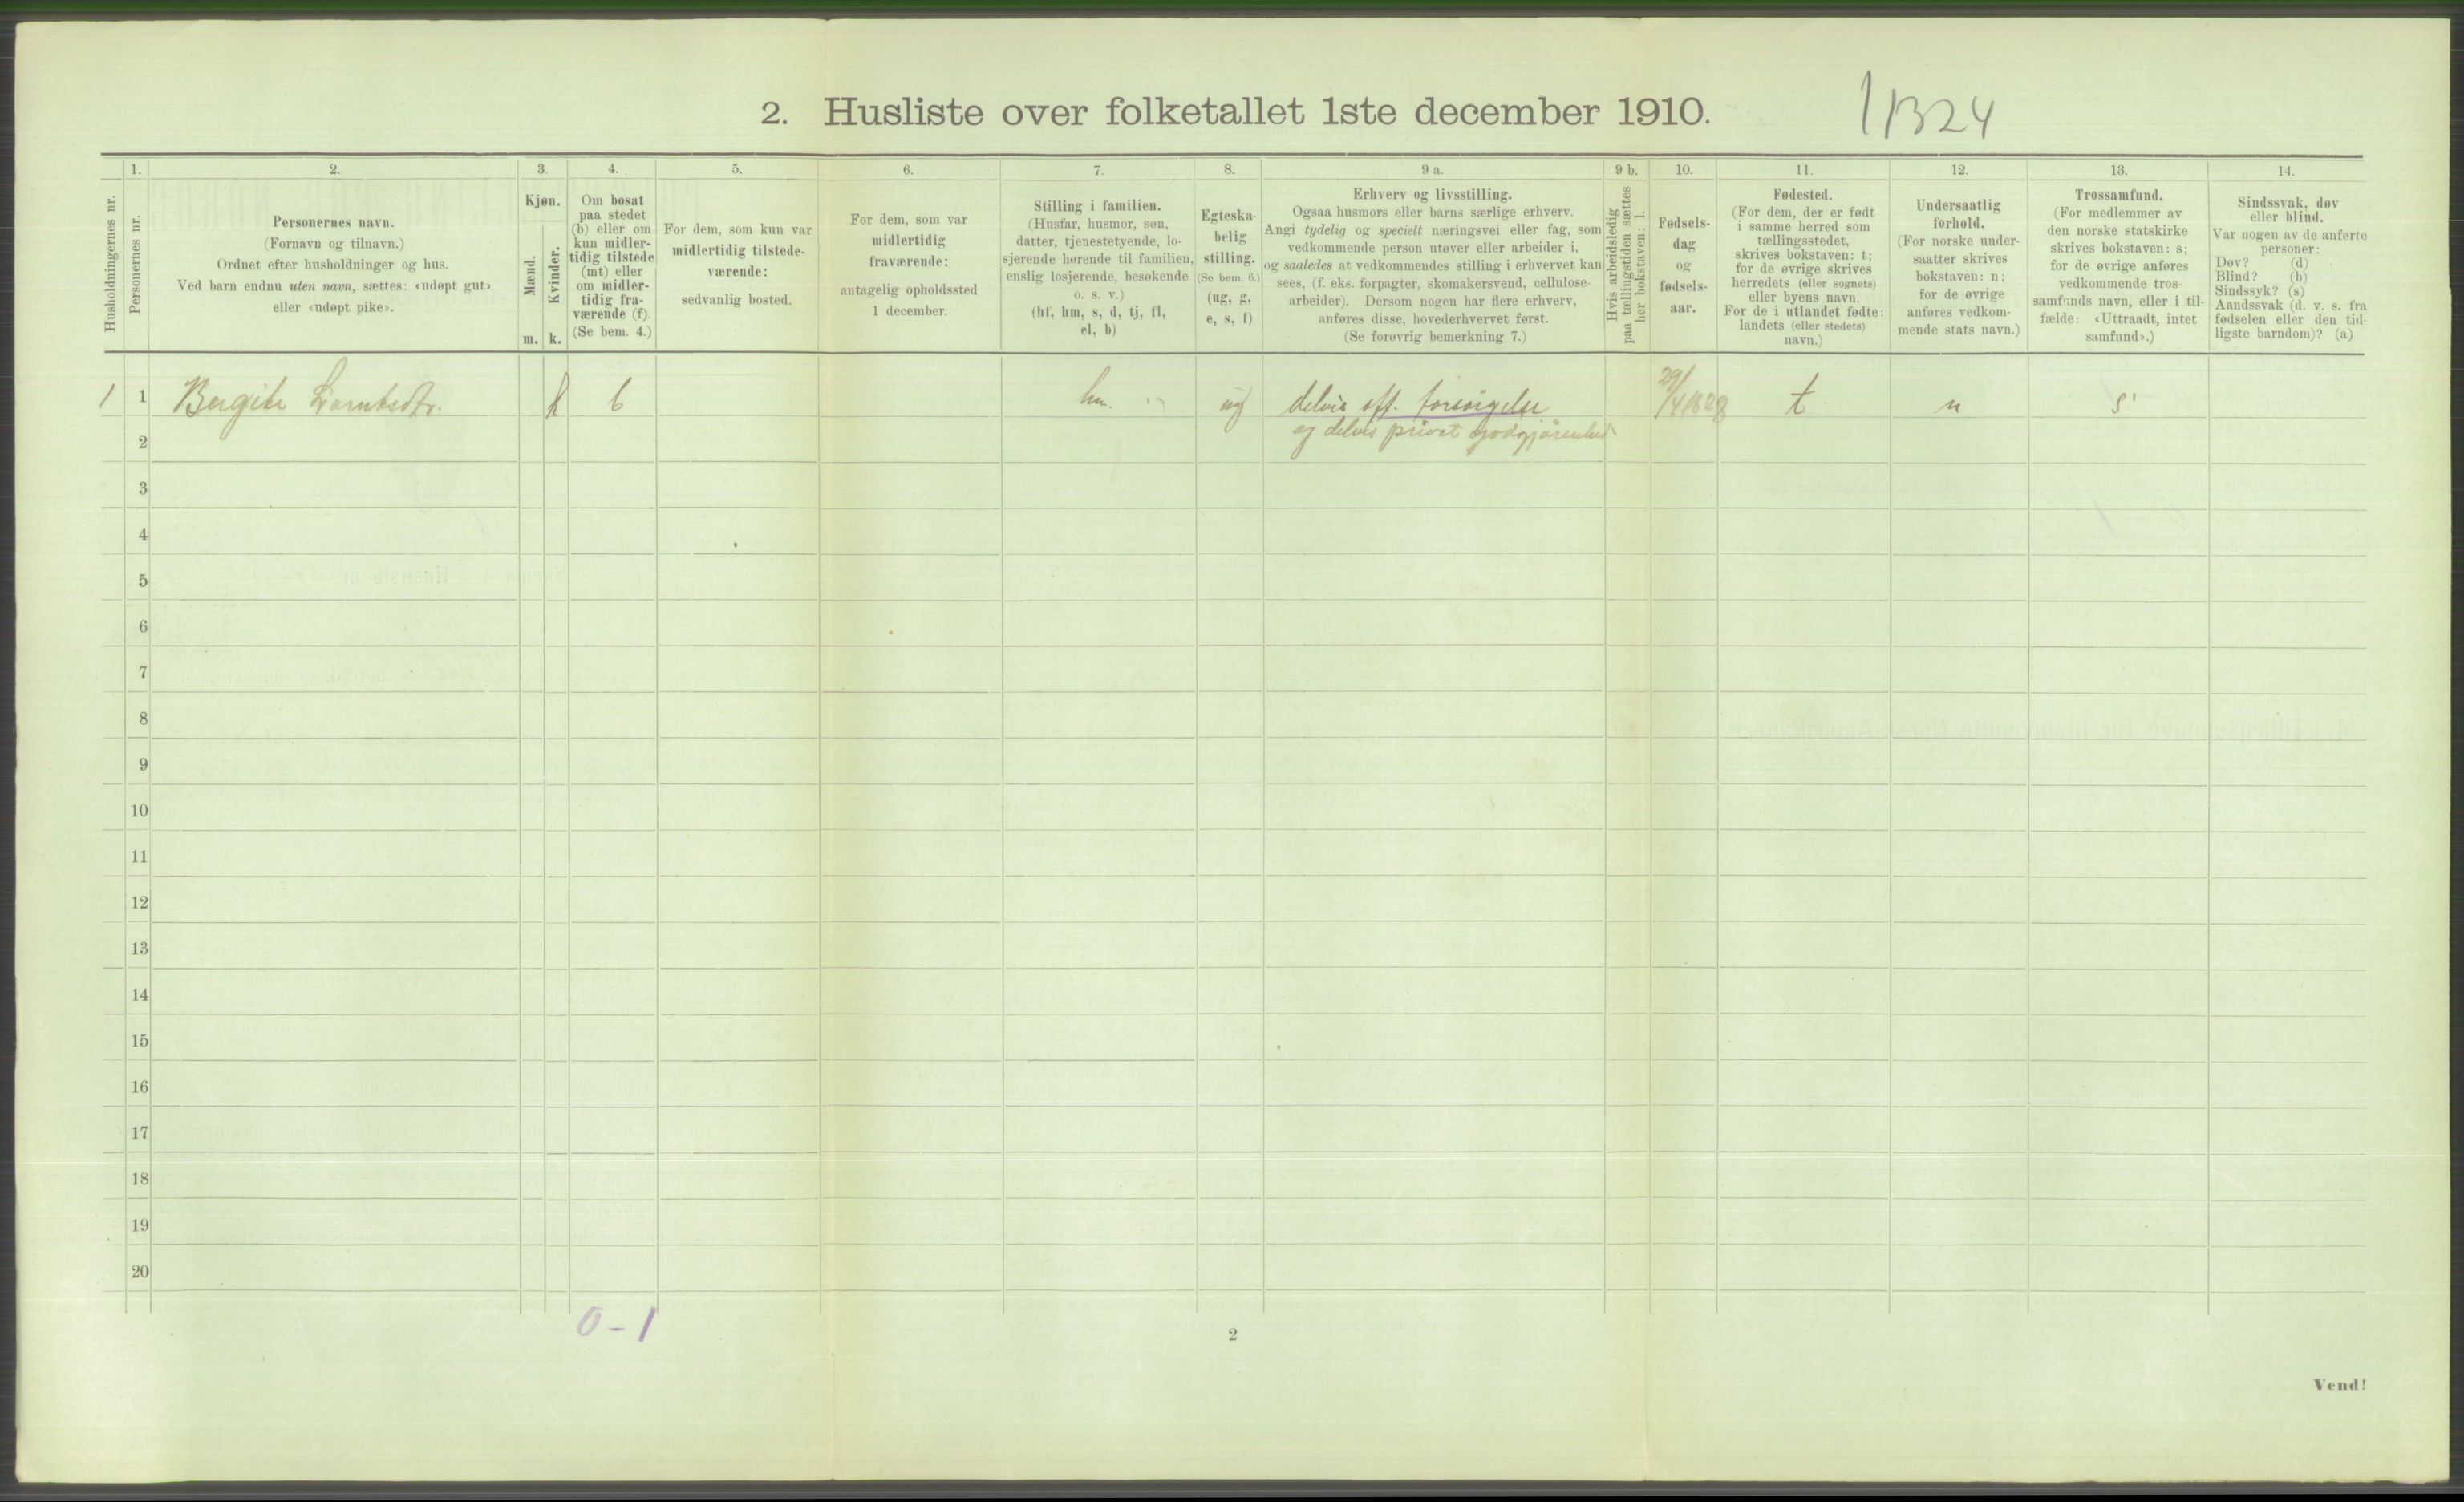 2. Husliste over folketallet 1ste december 1910.
1324
Husholdningernes nr.
1.
Personernes nr.
2.
Personernes navn.
(Fornavn og tilnavn.)
Ordnet efter husholdninger og hus.
Ved barn endnu uten navn, sættes: «udøpt gut»
eller «udøpt pike».
3.
Kjøn.
Mænd.
Kvinder.
m. k.
4.
Om bosat
paa stedet
(b) eller om
kun midler-
tidig tilstede
(mt) eller
om midler-
tidig fra-
værende (f).
(Se bem. 4.)
5.
For dem, som kun var
midlertidig tilstede-
værende:
sedvanlig bosted.
6.
For dem, som var
midlertidig
fraværende:
antagelig opholdssted
1 december.
7.
Stilling i familien.
(Husfar, husmor, søn,
datter, tjenestetyende, lo-
sjerende hørende til familien,
enslig losjerende, besøkende
o. s. v.)
(hf, hm, s, d, tj, fl,
el, b)
8.
Egteska-
belig
stilling.
(Se bem. 6.)
(ug, g,
e, s, f)
9 a.
Erhverv og livsstilling.
Ogsaa husmors eller barns særlige erhverv.
Angi tydelig og specielt næringsvei eller fag, som
vedkommende person utøver eller arbeider i,
og saaledes at vedkommendes stilling i erhvervet kan
sees, (f. eks. forpagter, skomakersvend, cellulose-
arbeider). Dersom nogen har flere erhverv,
anføres disse, hovederhvervet først.
(Se forøvrig bemerkning 7.)
9 b.
Hvis arbeidsledig
paa tællingstiden sættes
her bokstaven: l.
10.
Fødsels-
dag
og
fødsels-
aar.
11.
Fødested.
(For dem, der er født
i samme herred som
tællingsstedet,
skrives bokstaven: t;
for de øvrige skrives
herredets (eller sognets)
eller byens navn.
For de i utlandet fødte:
landets (eller stedets)
navn.)
12.
Undersaatlig
forhold.
(For norske under-
saatter skrives
bokstaven: n;
for de øvrige
anføres vedkom-
mende stats navn.)
13.
Trossamfund.
(For medlemmer av
den norske statskirke
skrives bokstaven: s;
for de øvrige anføres
vedkommende tros-
samfunds navn, eller i til-
fælde: «Uttraadt, intet
samfund».)
14.
Sindssvak, døv
eller blind.
Var nogen av de anførte
personer:
Døv? (d)
Blind? (b)
Sindssyk? (s)
Aandssvak (d. v. s. fra
fødselen eller den tid-
ligste barndom)? (a)
1 1 Bergite k b hm. ug delvis off. forsörgelse 29/4 1828 t n s
og delvis privat godgjörenhed
2
3
4
5
6
7
8
9
10
11
12
13
14
15
16
17
18
19
20
0 - 1
2
Vend!